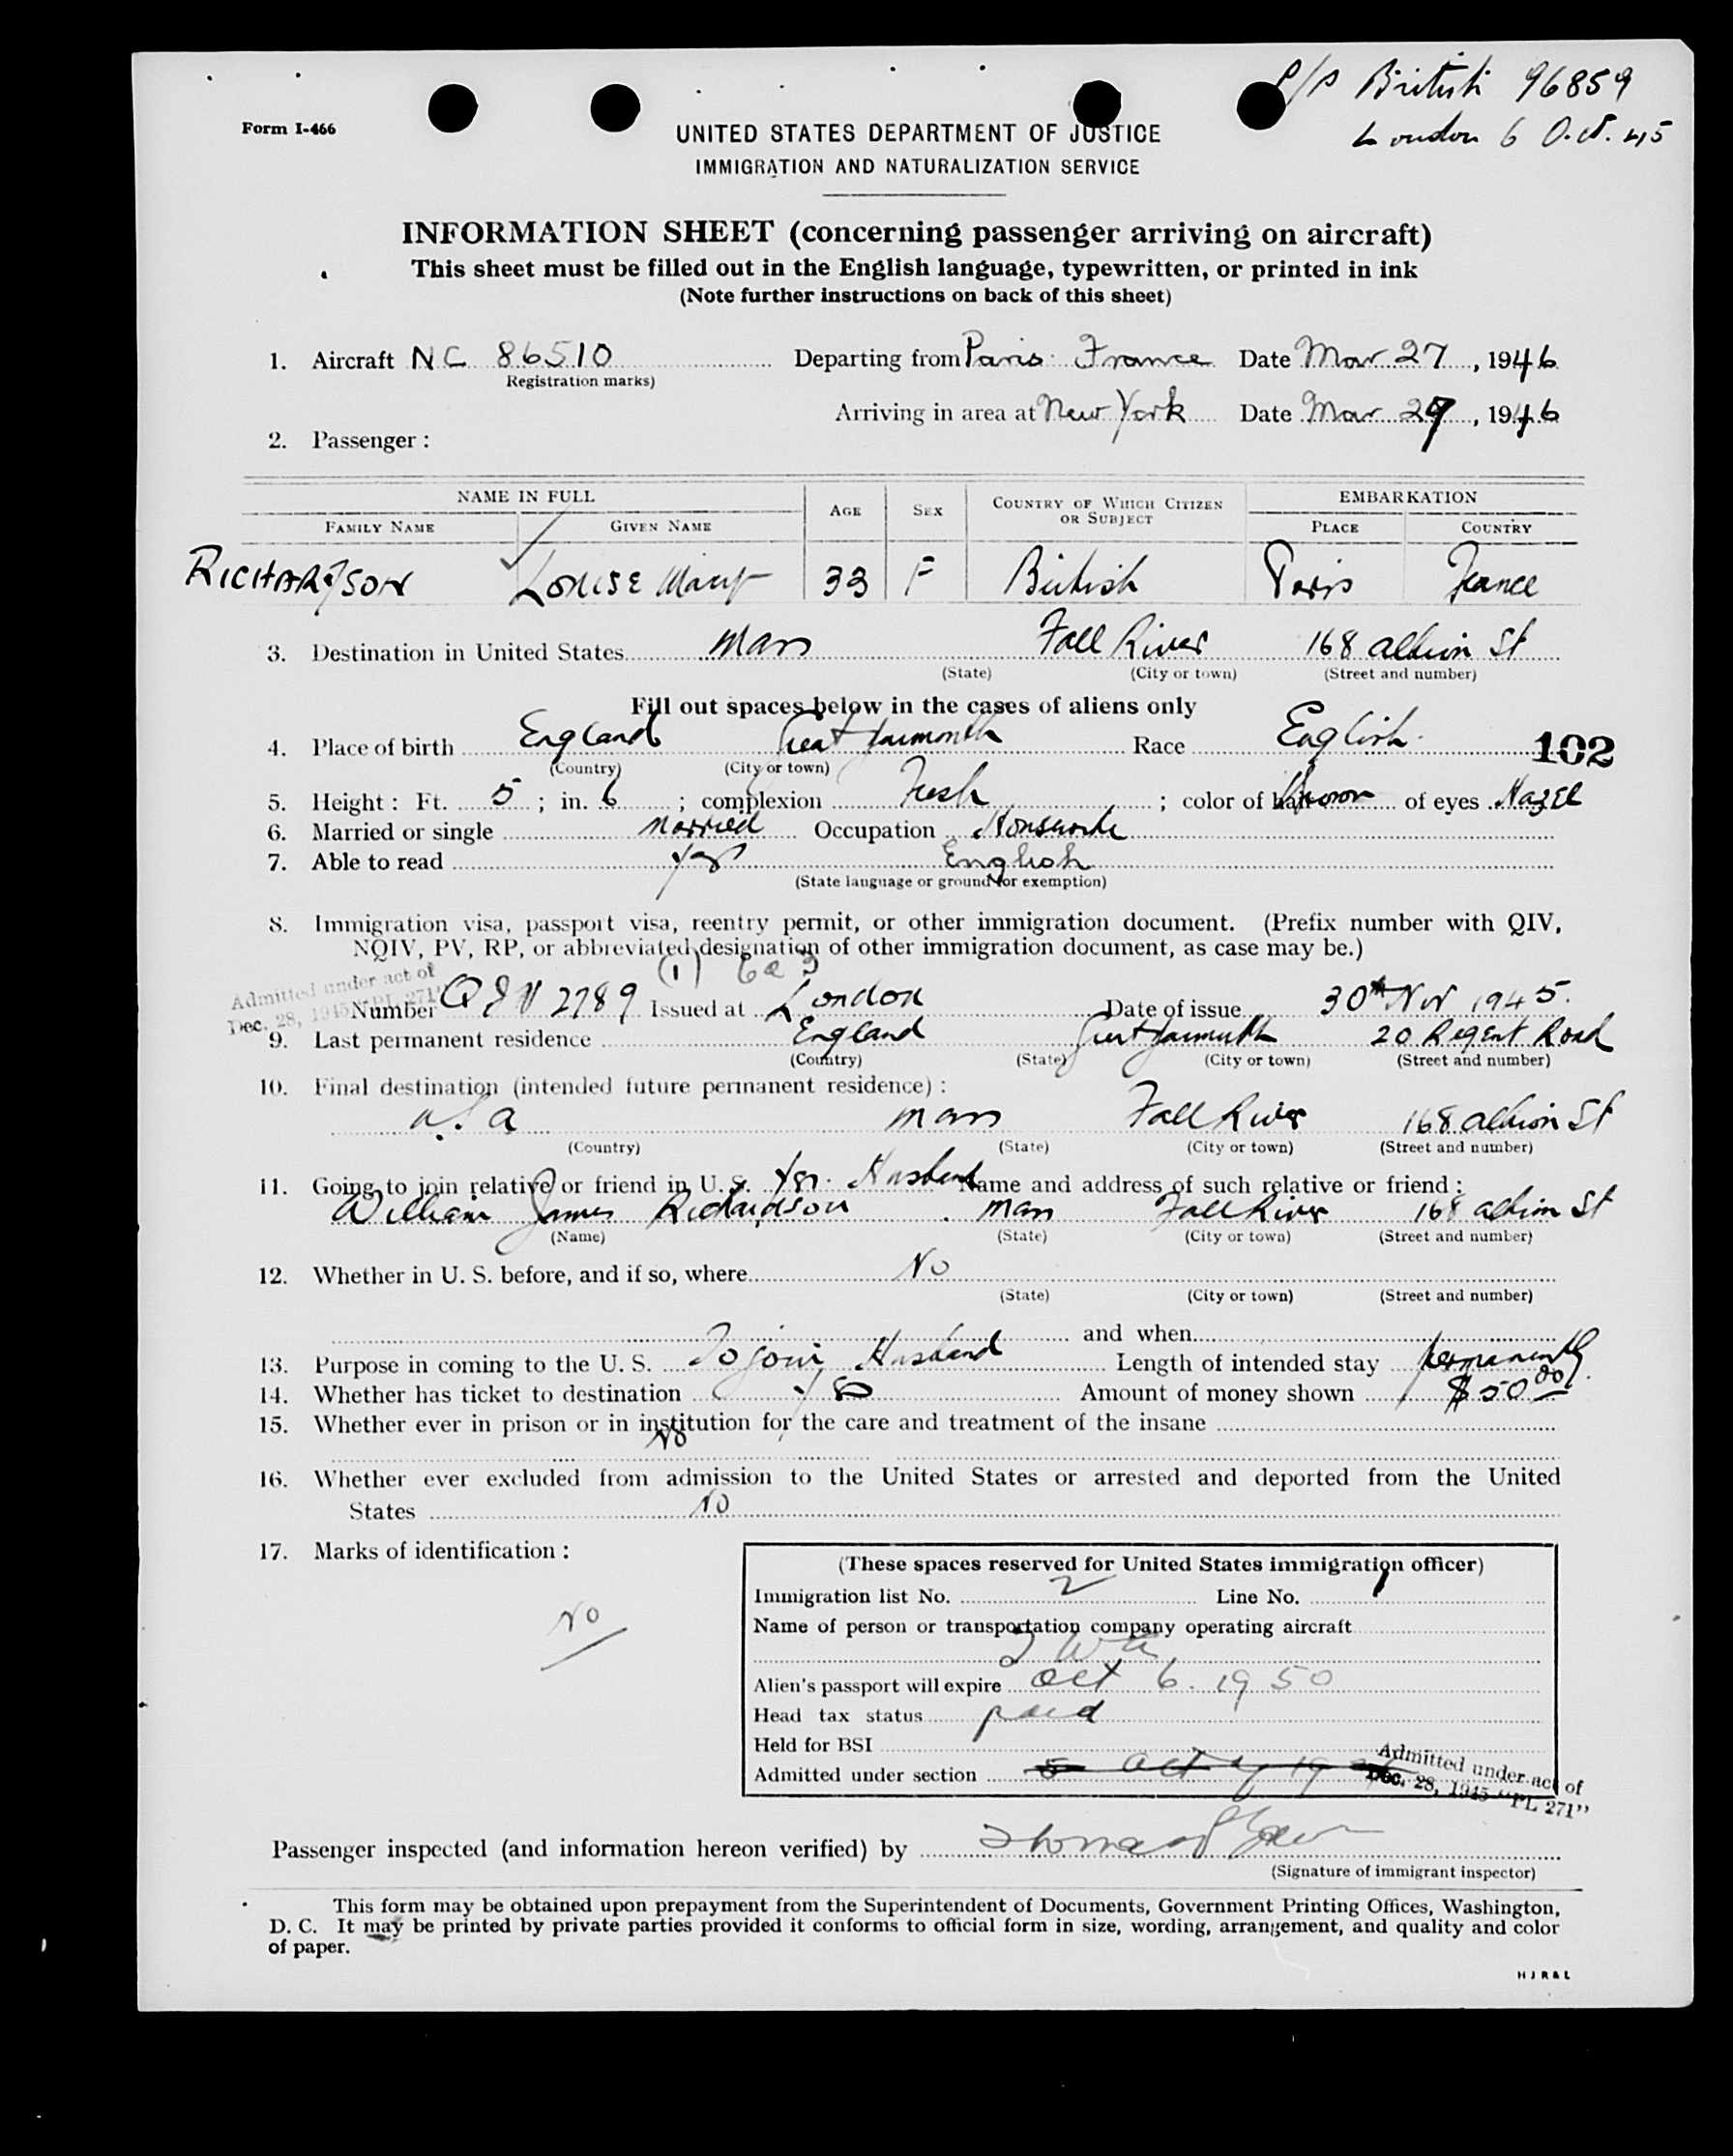 P/P British 96859
London 6 Oct. 45
Form I-466
UNITED STATES DEPARTMENT OF JUSTICE
IMMIGRATION AND NATURALIZATION SERVICE
INFORMATION SHEET (concerning passenger arriving on aircraft)
This sheet must be filled out in the English language, typewritten, or printed in ink
(Note further instructions on back of this sheet)
1. Aircraft NC 86510 Departing from Paris France Date Mar 27, 1946
Registration marks)
Arriving in area at New York Date Mar 29, 1946
2. Passenger :
NAME IN FULL AGE SEX COUNTRY OF WHICH CITIZEN OR SUBJECT EMBARKATION
FAMILY NAME GIVEN NAME PLACE COUNTRY
RICHARDSON LOUISE Mary 33 F British Paris France
3. Destination in United States Mass Fall River 168 albion St
(State) (City or town) (Street and number)
Fill out spaces below in the cases of aliens only
4. Place of birth England Great Yarmouth Race English 102
(Country) (City or town)
5. Height : Ft. 5 ; in. 6 ; complexion Fresh ; color of hair Brown of eyes Hazel
6. Married or single Married Occupation Housework
7. Able to read yes English
(State language or ground for exemption)
8. Immigration visa, passport visa, reentry permit, or other immigration document. (Prefix number with QIV,
NQIV, PV, RP, or abbreviated designation of other immigration document, as case may be.)
(1) 6a3
Admitted under act of
Dec. 28, 1945 "PL 271"
Number QIV 2789 Issued at London Date of issue 30th Nov 1945.
9. Last permanent residence England Great Yarmouth 20 Regent Road
(Country) (State) (City or town) (Street and number)
10. Final destination (intended future permanent residence) :
U.S.A Mass Fall River 168 albion St
(Country) (State) (City or town) (Street and number)
11. Going to join relative or friend in U. S. Yes. Husband Name and address of such relative or friend :
William James Richardson. Mass Fall River 168 albion St
(Name) (State) (City or town) (Street and number)
12. Whether in U. S. before, and if so, where No
(State) (City or town) (Street and number)
and when
13. Purpose in coming to the U. S. To join Husband Length of intended stay permanently
14. Whether has ticket to destination yes Amount of money shown $50.00
15. Whether ever in prison or in institution for the care and treatment of the insane
No
16. Whether ever excluded from admission to the United States or arrested and deported from the United
States No
17. Marks of identification :
No
(These spaces reserved for United States immigration officer)
Immigration list No. 2 Line No. 1
Name of person or transportation company operating aircraft
TWA
Alien's passport will expire Oct 6. 1950
Head tax status paid
Held for BSI
Admitted under section
Admitted under act of
Dec. 28, 1945 "PL 271"
Passenger inspected (and information hereon verified) by
(Signature of immigrant inspector)
This form may be obtained upon prepayment from the Superintendent of Documents, Government Printing Offices, Washington,
D. C. It may be printed by private parties provided it conforms to official form in size, wording, arrangement, and quality and color
of paper.
H J R & L